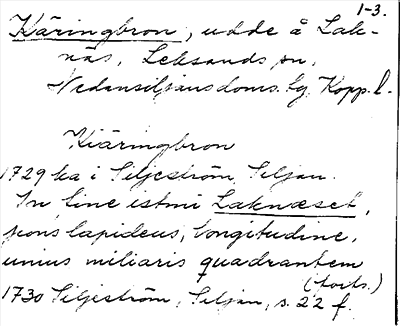 1-3.
Käringbron, udde å Lak-
näs, Leksands sn,
Nedansiljans doms. bg, Kopp. l.
Kiäringbron
1729 ka i Siljeström, Siljan.
In fine istmi Laknæset,
pons lapideus, longitudine,
unius miliaris quadrantem
(forts.)
1730 Siljeström, Siljan, s. 22 f.